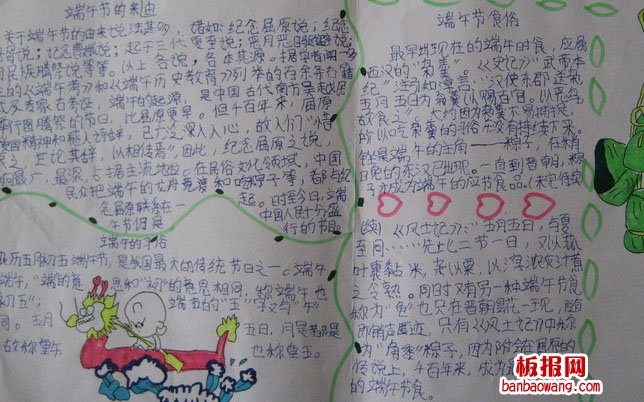 端午节的来由
关于端午节的由来说法甚多，诸如：纪念屈原说；纪念
说；起于三代夏至说；恶月恶日驱避说；
民族图腾祭说等等。以上各说，各本其源。据学者闻一多
的《端午考》和《端午历史教育》列举的百余条古籍
及专家考古考证，端午的起源，是中国古代南方吴越民
举行图腾祭的节日，比屈原更早。但千百年来，屈原
爱国精神和感人诗辞，已广泛深入人心，故人们“惜
哀之，世论其辞，以相传焉”因此，纪念屈原之说，
最广最深，占据主流地位。在民俗文化领域，中国
民众把端午的龙舟竞渡和吃粽子等，都与纪
念屈原联系在一起。时至今日，端
午节仍是中国人民十分盛
行的节日
端午的习俗
农历五月初五端午节，是我国最大的传统节日之一。端午
端午，“端”的意思和“初”的意思相同，称“端午”也
初五”；端五的“五”字又与“午”
同。五月五日，月、日都是
故称重午，也称重五。
端午节食俗
最早出现在的端午时食，应属
西汉的“枭羹”。《史记》“武帝本
纪”注引如淳言：“汉使东郡送枭，
五月五日为枭羹以赐百官。以恶鸟，
故食之”。大约因为枭不易捕捉，
所以吃枭羹的习俗没有持续下来。
倒是端午的主角——粽子，在稍
后的东汉已出现。一直到晋朝，粽
子才成为端午的应节食品。（未完待续
（续）《风土记》：“五月五日，与夏
至同……先此二节一日，又以菰
叶裹黏米，杂以粟，以淳浓灰汁煮
之令熟。同时又有另一种端午节食
称为“龟”也只在晋朝昙花一现，随
即销声匿迹，只有《风土记》中称
为“角黍”粽子，因为附会屈原的
传说上，千百年来，成为
的端午节食。
板报网
banbaowang.com